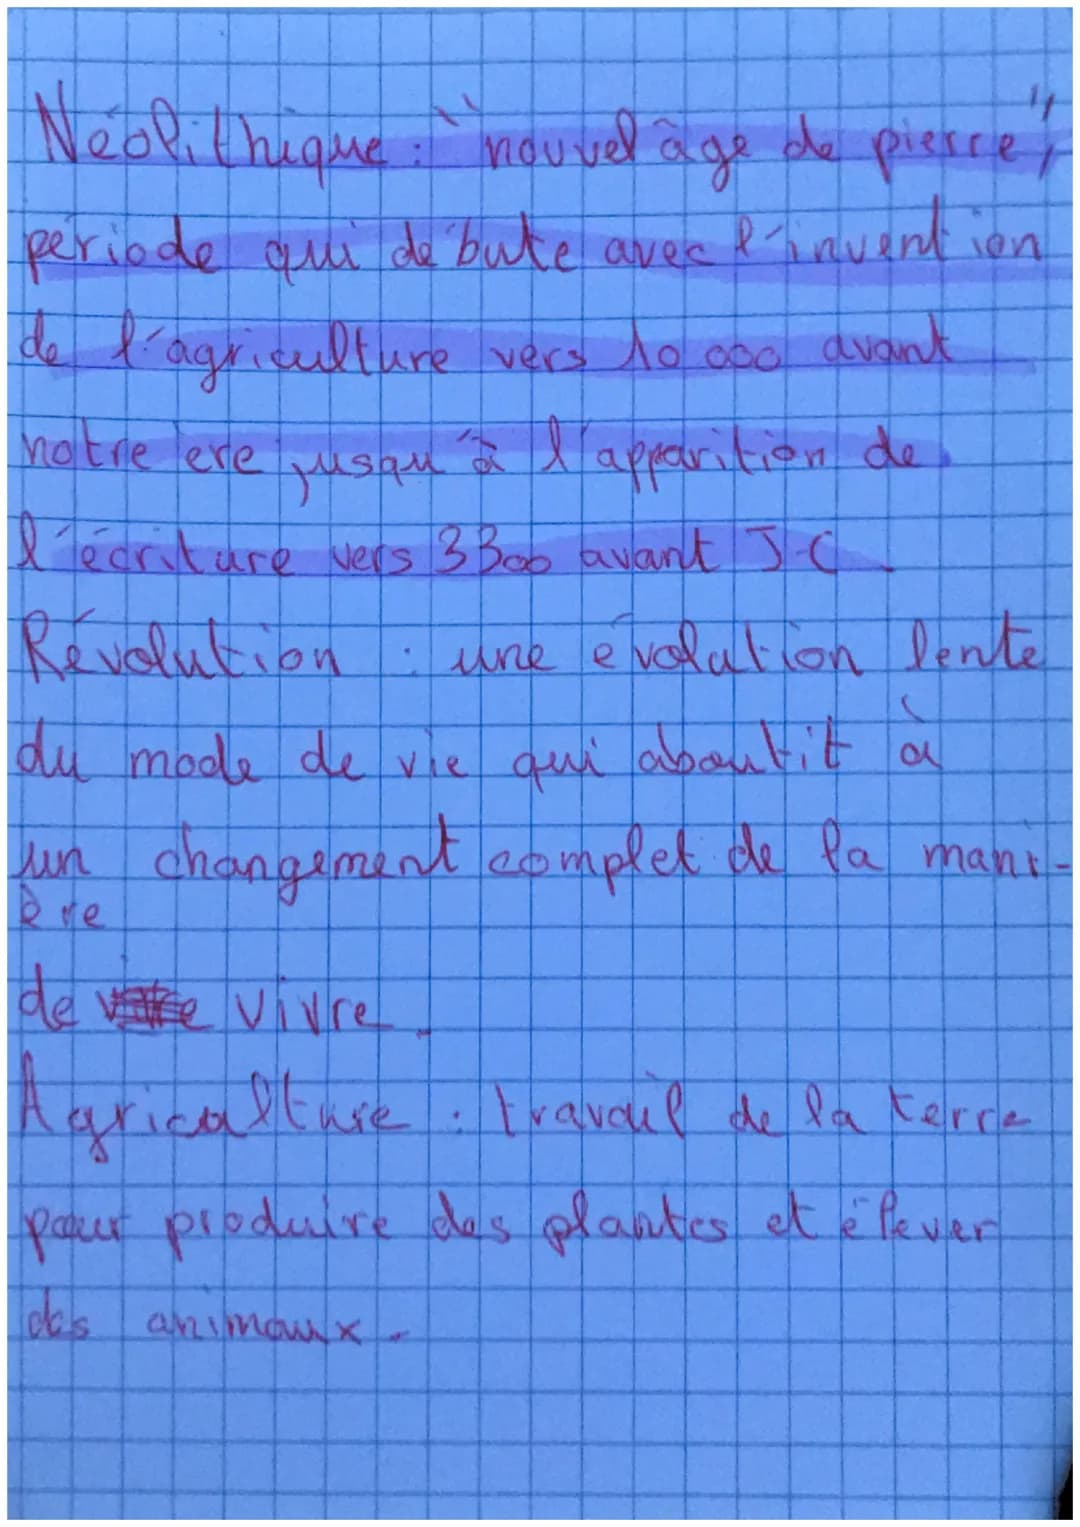 Néolithique : "nouvel âge de pierre",
période qui débute avec l'invention
de l'agriculture vers 10 000 avant
notre ère jusqu'à l'apparition de
l'écriture vers 3300 avant J-C
Révolution : une évolution lente
du mode de vie qui aboutit à
un changement complet de la mani-
ère
de vivre.
Agriculture : travail de la terre
pour produire des plantes et élever
des animaux.